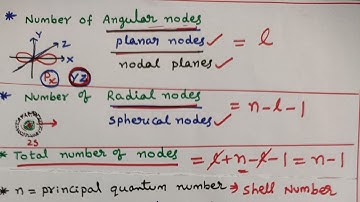 * Number of Angular nodes
planar nodes ✓ = l
nodal planes ✓
Y
Z
X
Px YZ
* Number of Radial nodes
spherical nodes ✓ = n-l-1
2s
* Total number of nodes = l+n-l-1 = n-1
* n = principal quantum number → shell Number